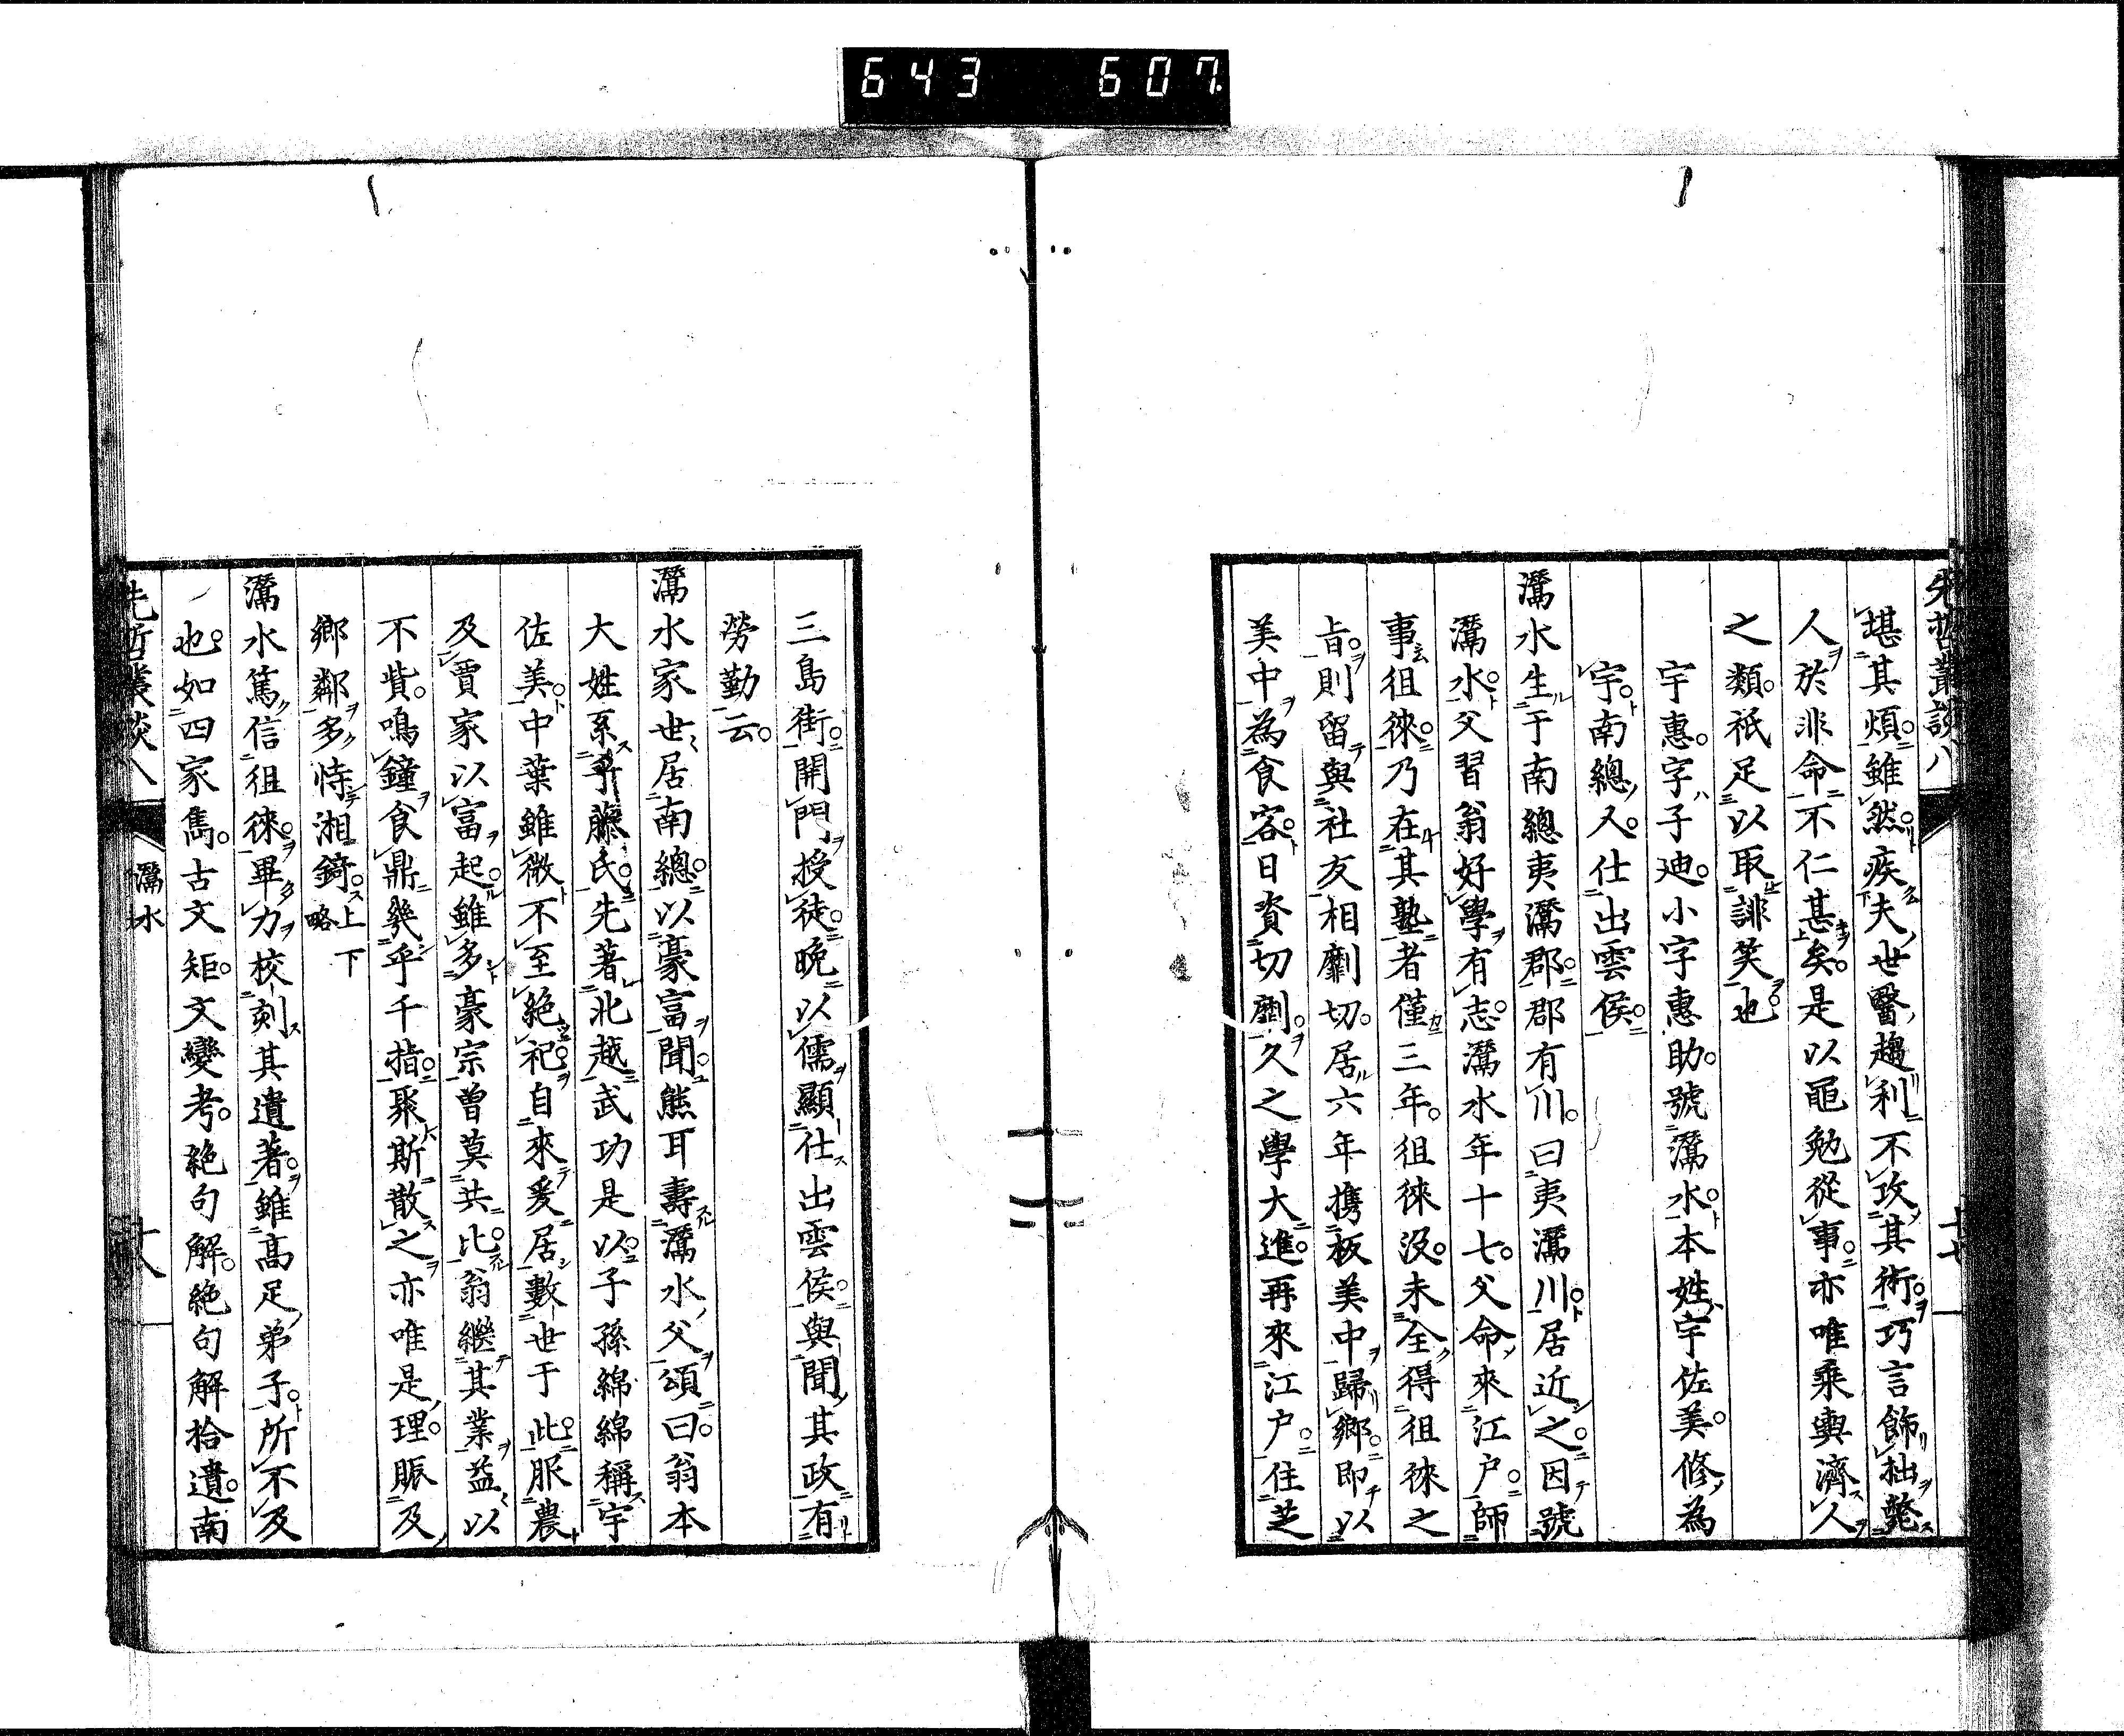 643 607
先哲叢談八
十七
堪其煩雖然疾夫世醫趨利不攻其術巧言飾拙斃
人於非命不仁甚矣是以黽勉從事亦唯乘輿濟人
之類祇足以取誹笑也
宇惠字子迪小字惠助號灊水本姓宇佐美修為
宇南總人仕出雲侯
灊水生于南總夷灊郡郡有川曰夷灊川居近之因號
灊水父習翁好學有志灊水年十七父命來江戶師
事徂徠乃在其塾者僅三年徂徠沒未全得徂徠之
旨則留與社友相劘切居六年携板美中歸鄉即以
美中為食客日資切劘久之學大進再來江戶住芝
三島街開門授徒晚以儒顯仕出雲侯與聞其政有
勞勤云
灊水家世居南總以豪富聞熊耳壽灊水父頌曰翁本
大姓系乎藤氏先著北越武功是以子孫綿綿稱宇
佐美中葉雖微不至絕祀自來爰居數世于此服農
及賈家以富起雖多豪宗曾莫共比翁繼其業益以
不貲鳴鐘食鼎幾乎千指聚斯散之亦唯是理賑及
鄉鄰多恃湘錡上下略
灊水篤信徂徠畢力校刻其遺著雖高足弟子所不及
也如四家雋古文矩文變考絕句解絕句解拾遺南
先哲叢談八
灊水
十八